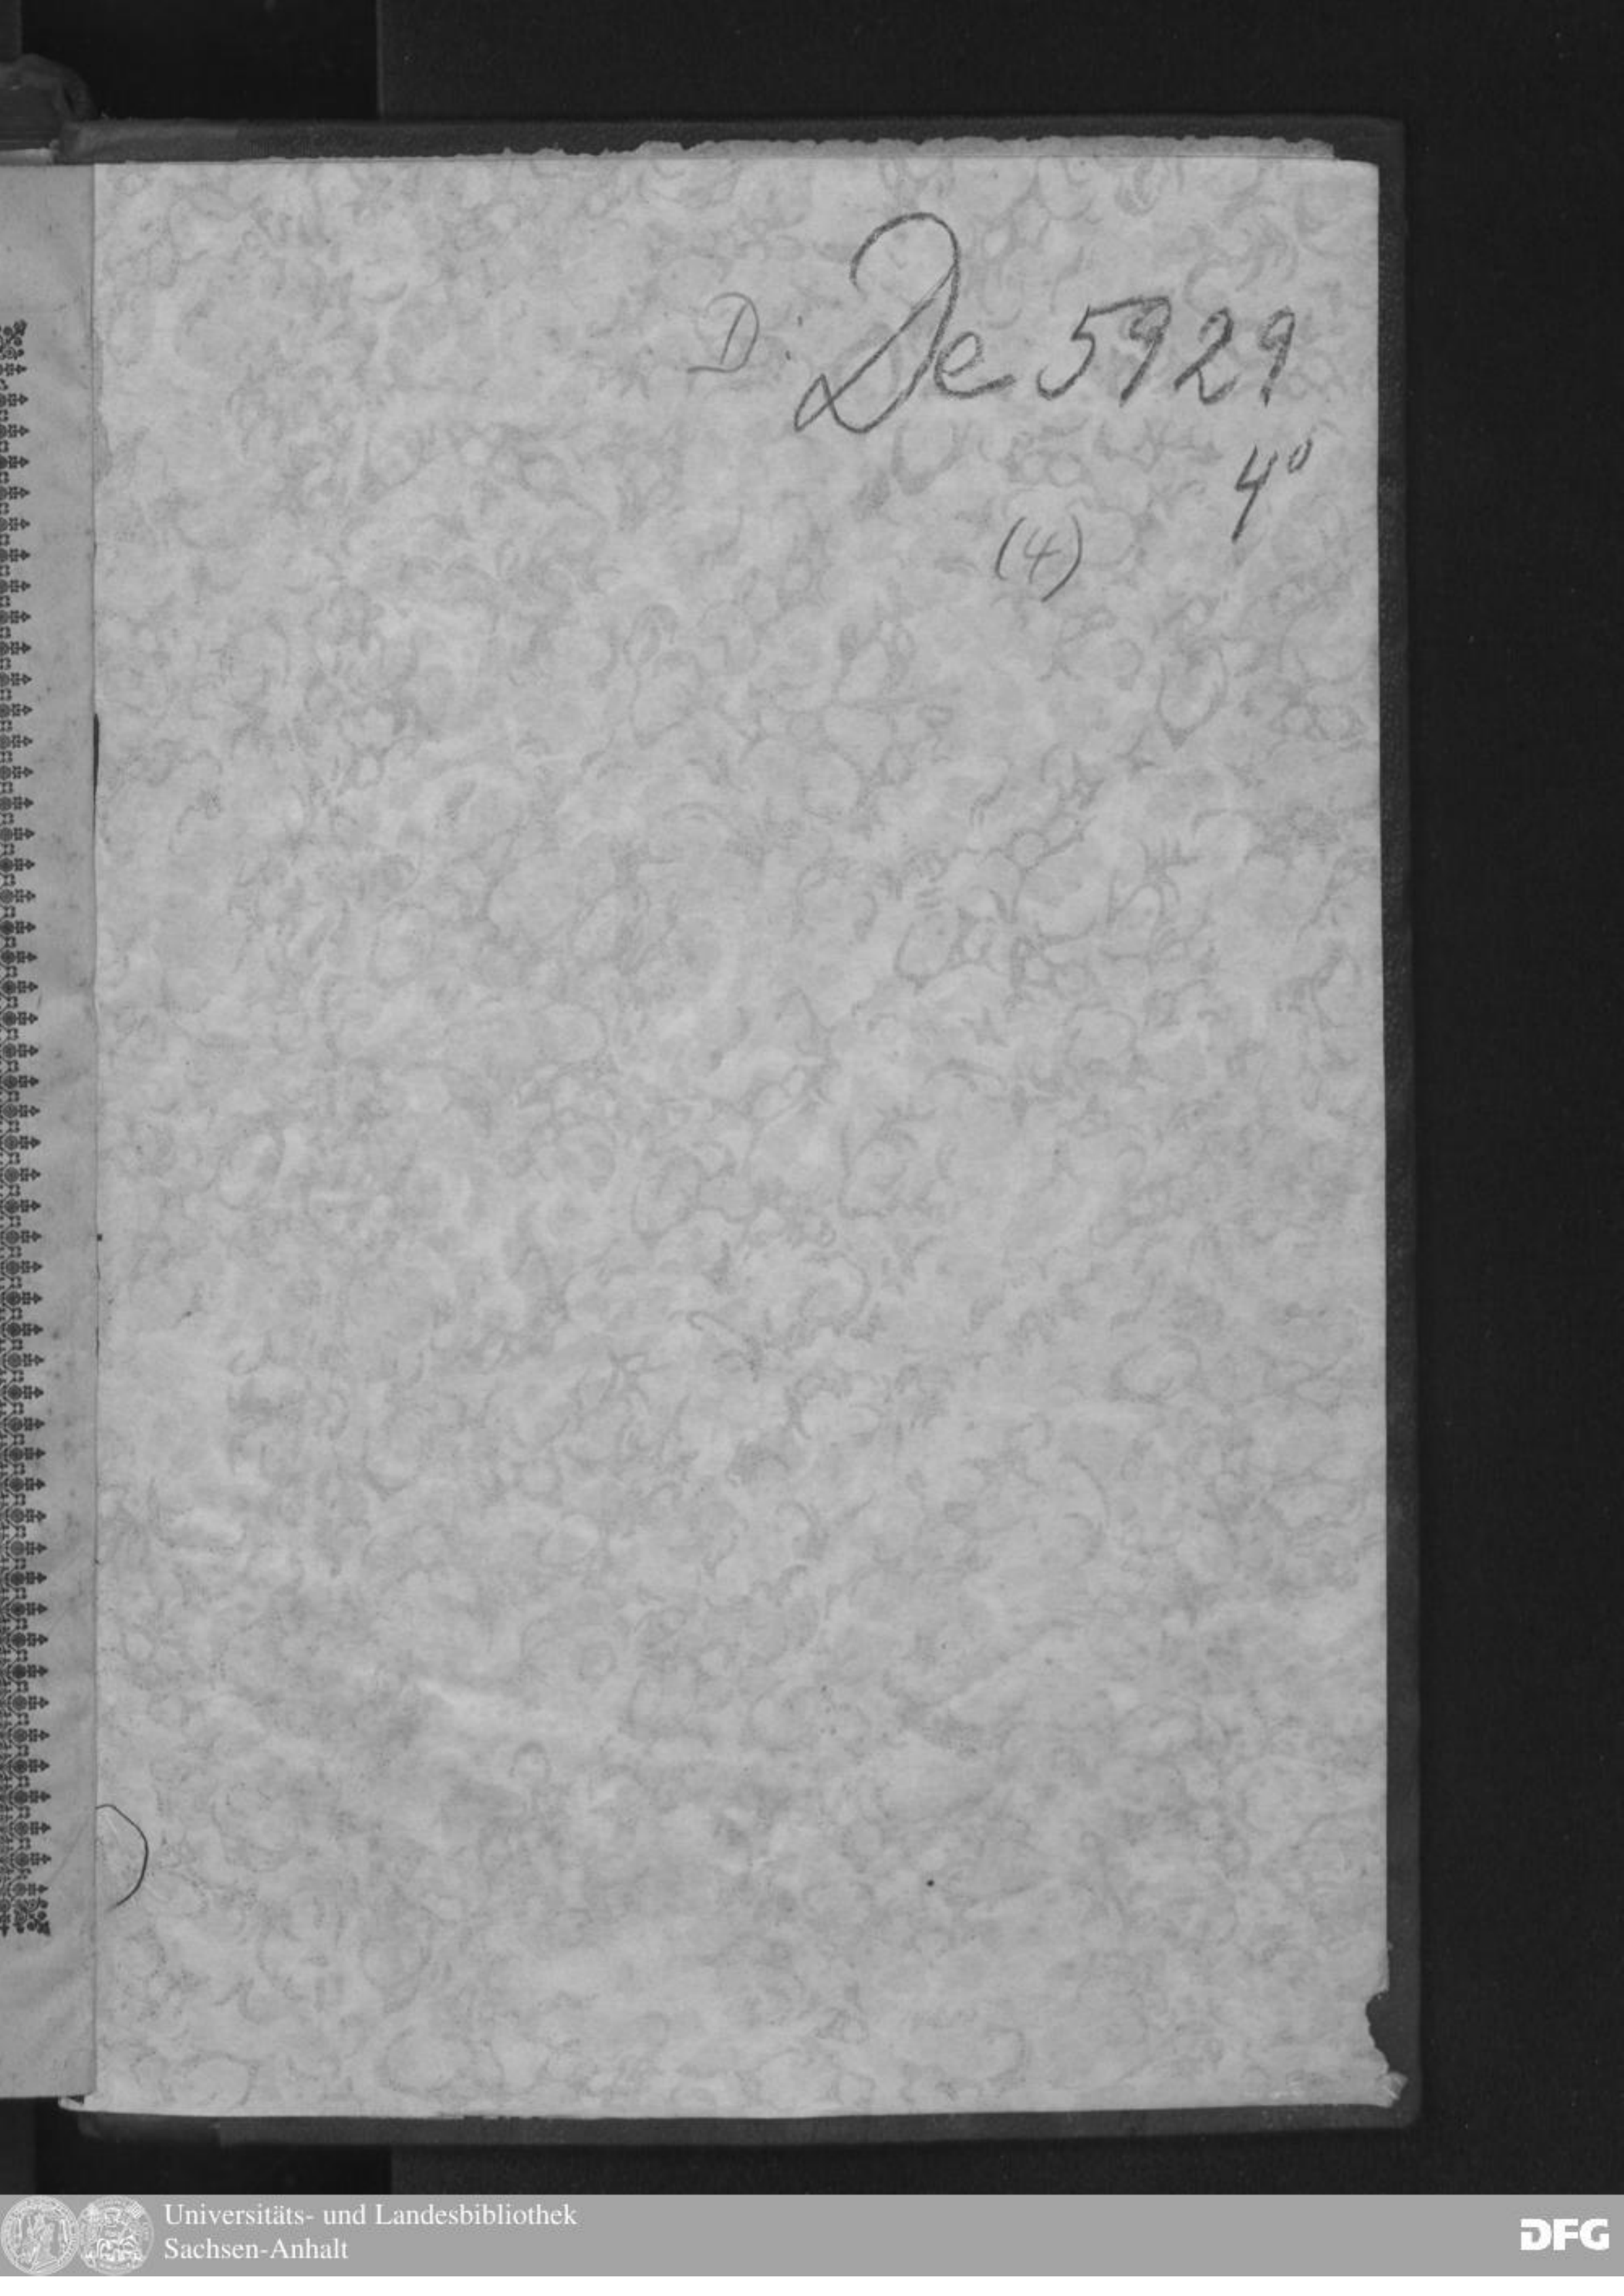 D: De 5929
4°
(4)
Universitäts- und Landesbibliothek
Sachsen-Anhalt
DFG